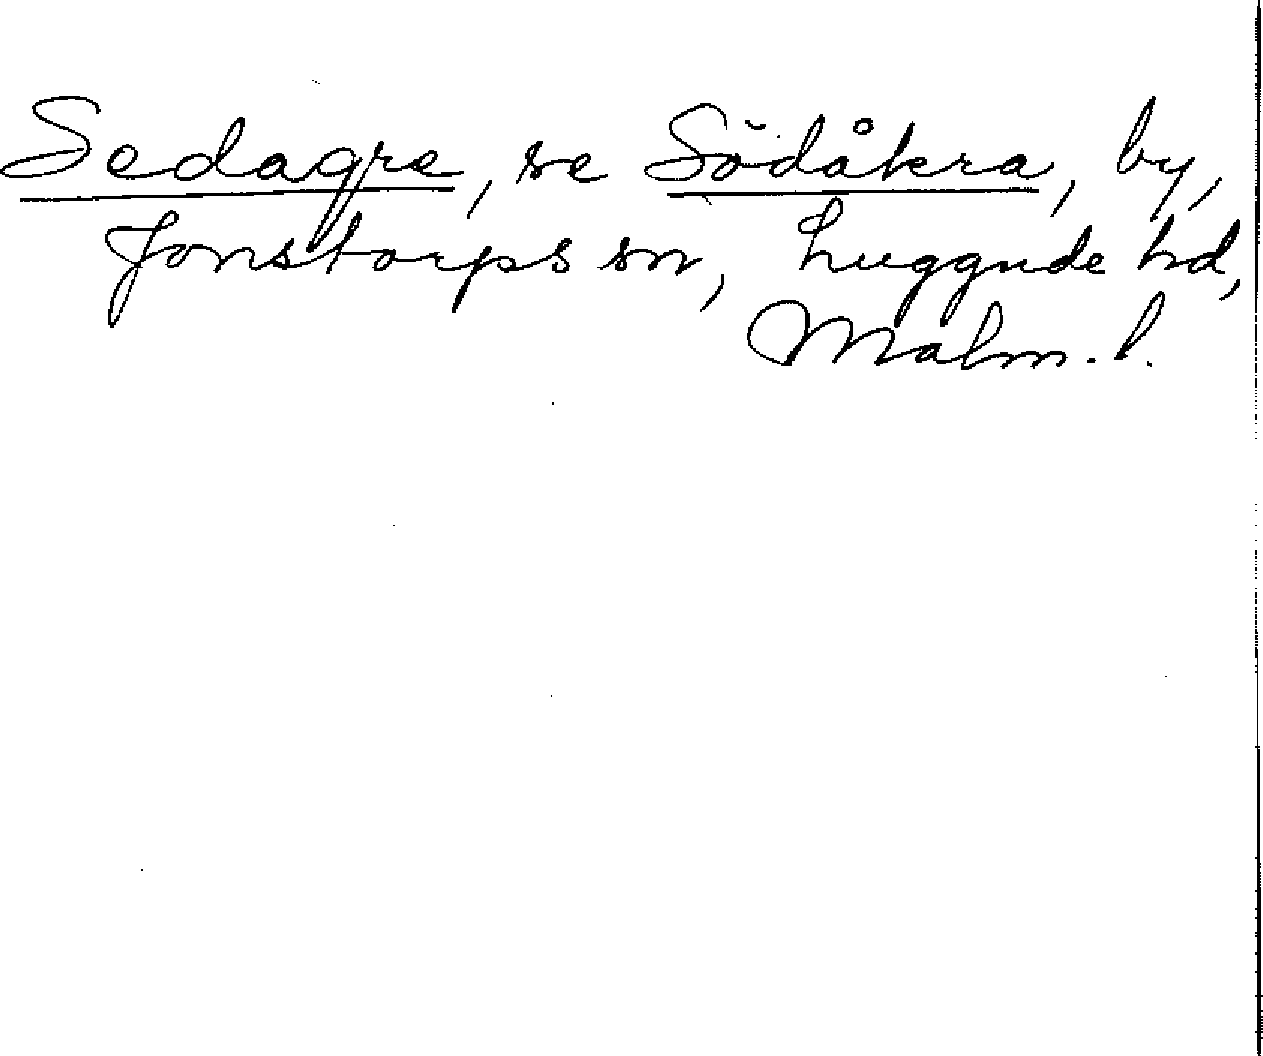 Sedagre, se Södåkra, by,
Jonstorps sn, Luggude hd,
Malm. l.